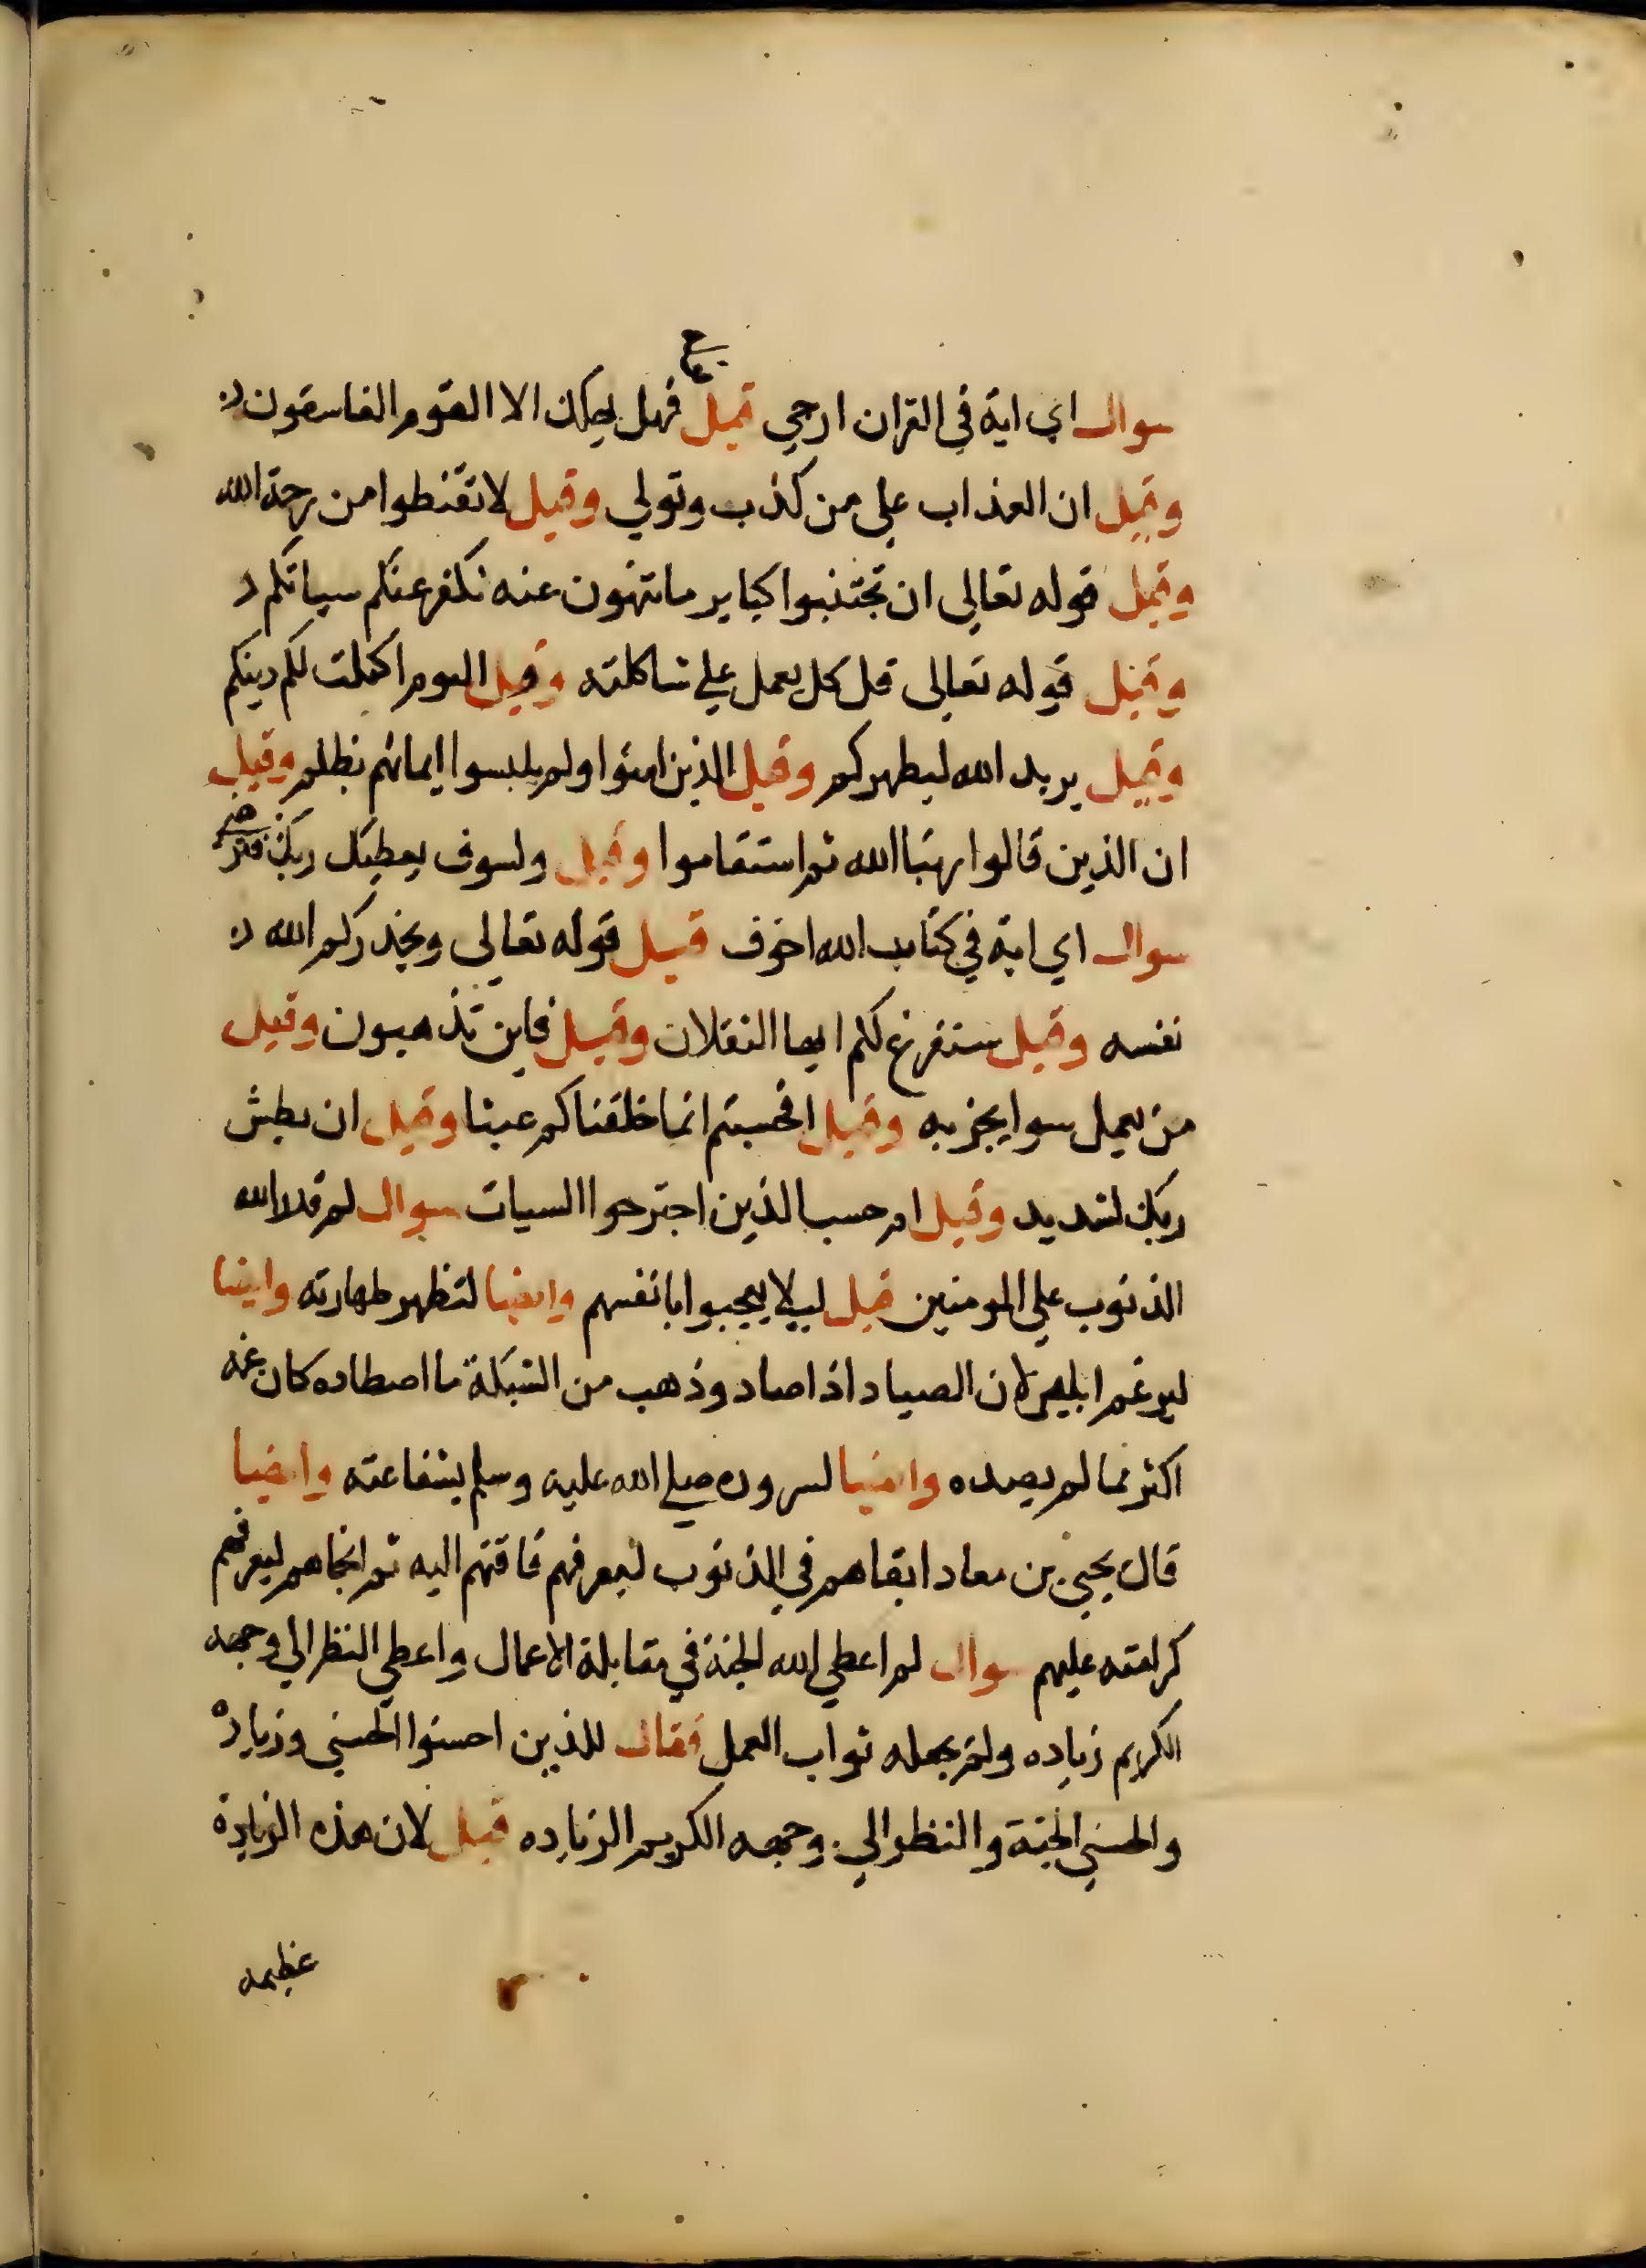 سوال اي اية في القران ارجي قيل فهل يهلك الا القوم الفاسقون
وقيل ان العذاب علي من كذب وتولي وقيل لا تقنطوا من رحمة الله
وقيل قوله تعالي ان تجتنبوا كباير ما تنهون عنه نكفر عنكم سياتكم
وقيل قوله تعالى قل كل يعمل علي شاكلته وقيل اليوم اكملت لكم دينكم
وقيل يريد الله ليطهركم وقيل الذين امنوا ولم يلبسوا ايمانهم بظلم وقيل
ان الذين قالوا ربنا الله ثم استقاموا وقيل ولسوف يعطيك ربك فترضى
سوال اي اية في كتاب الله اخوف قيل قوله تعالي ويحذركم الله
نفسه وقيل سنفرغ لكم ايها الثقلان وقيل فاين تذهبون وقيل
من يعمل سوا يجز به وقيل افحسبتم انما خلقناكم عبثا وقيل ان بطش
ربك لشديد وقيل ام حسب الذين اجترحوا السيات سوال لم قدر الله
الذنوب علي المومنين قيل ليلا يعجبوا بانفسهم وايضا لتظهر طهارته وايضا
ليرغم ابليس لان الصياد اذا صاد وذهب من الشبكة ما اصطاده كان غمه
اكثر مما لم يصده وايضا لسروره صلي الله عليه وسلم بشفاعته وايضا
قال يحيى بن معاد ابقاهم في الذنوب ليعرفهم فاقتهم اليه ثم انجاهم ليعرفهم
كرامته عليهم سوال لم اعطي الله الجنة في مقابلة الاعمال واعطي النظر الي وجهه
الكريم زياده ولم يجعله ثواب العمل فقال للذين احسنوا الحسني وزياده
والحسني الجنة والنظر الي وجهه الكريم الزياده قيل لان هذه الزيادة
عظيمه